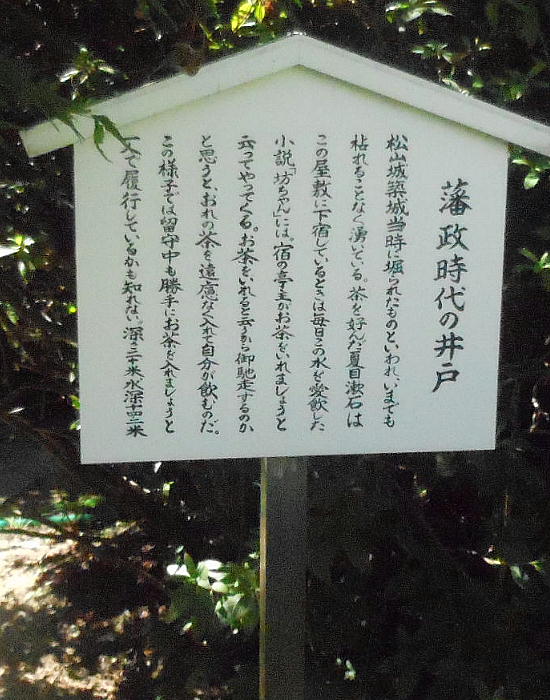 藩政時代の井戸
松山城築城当時に掘られたものといわれ、いまでも
枯れることなく湧いている。茶を好んだ夏目漱石は
この屋敷に下宿しているときは毎日この水を愛飲した
小説「坊ちゃん」には、宿の亭主がお茶をいれましょうと
云ってやってくる。お茶をいれると云うから御馳走するのか
と思うと、おれの茶を遠慮なく入れて自分が飲むものだ。
この様子では留守中も勝手にお茶を入れましょうと
一人で履行しているかも知れない。深さ二十米水深十四二米